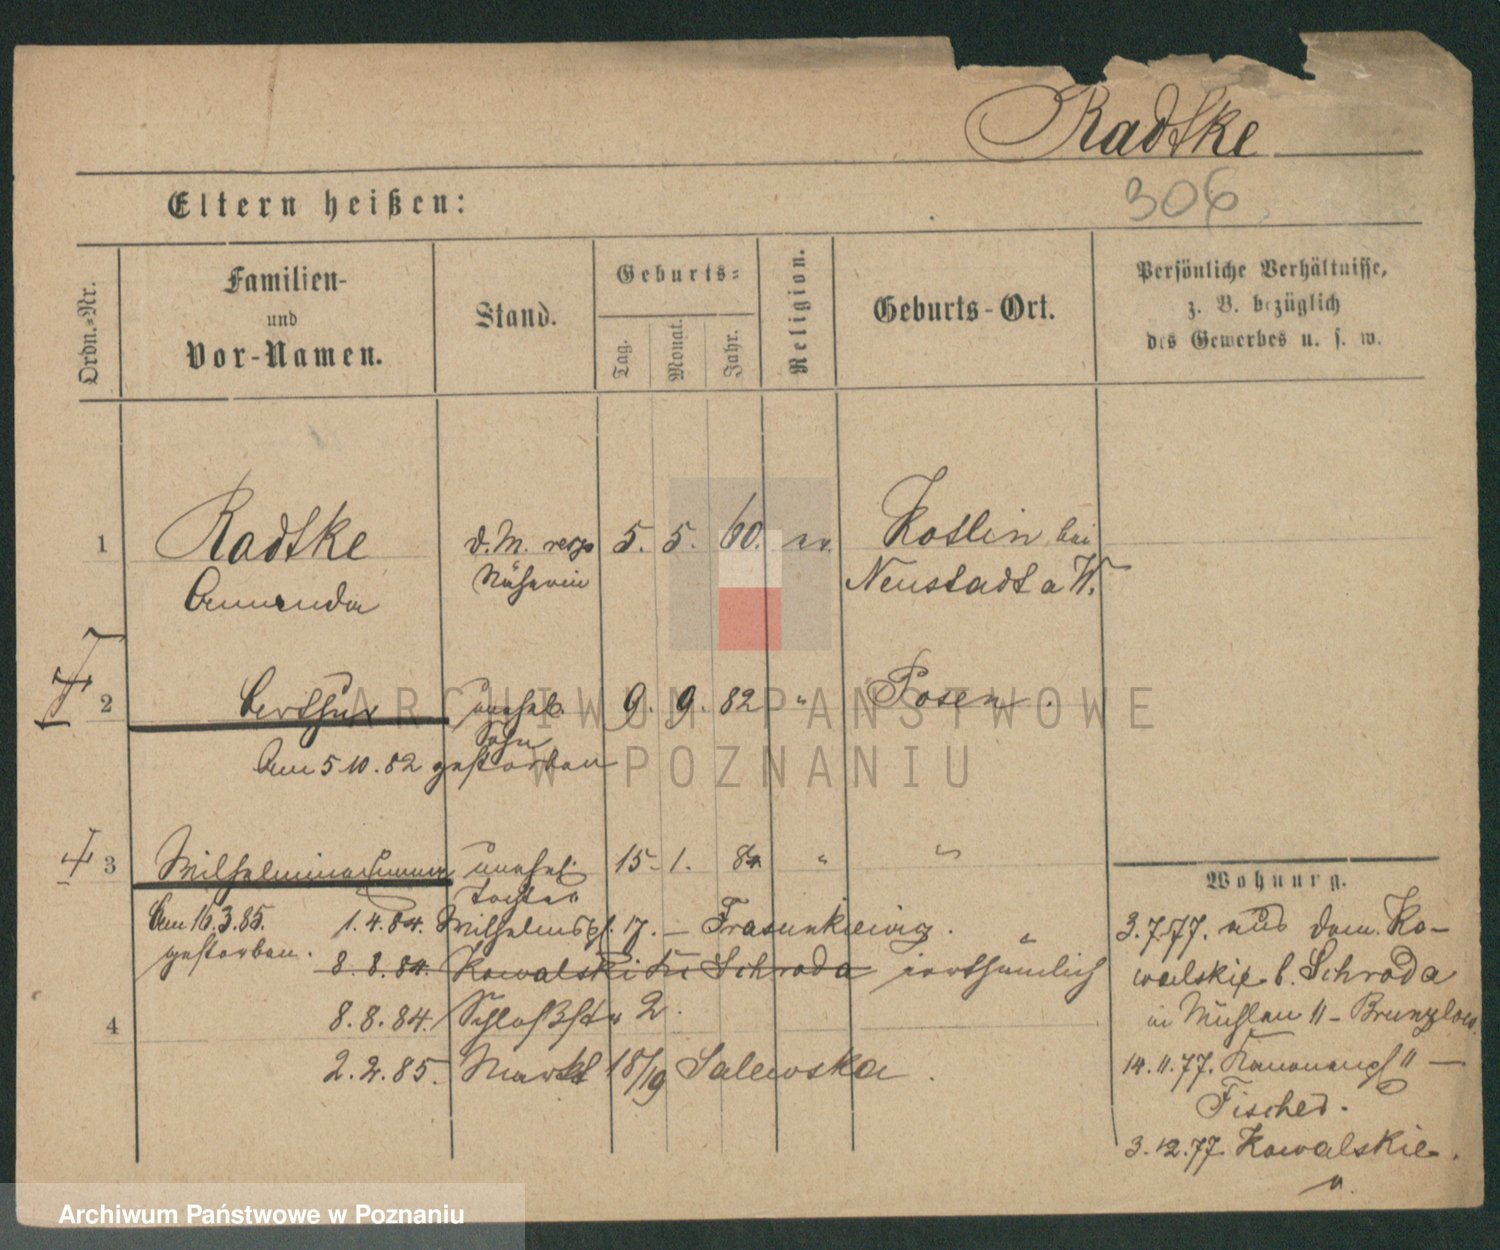 Radtke
306
Eltern heißen:
Ordn.-Nr.
Familien-
und
Vor-Namen.
Stand.
Geburts-
Tag.
Monat.
Jahr.
Religion.
Geburts-Ort.
Persönliche Verhältnisse,
z. B. bezüglich
des Gewerbes u. s. w.
1 Radtke d. M. resp 5. 5. 60. ev. Koslin bei
Amanda Näherin Neustadt a W.
2 Arthur unehel. 9. 9. 82 " Posen.
Sohn
Am 5 10. 82 gestorben
3 Wilhelmine unehel. 15. 1. 84 " "
Tochter
Am 16.3.85.
gestorben.
1.4.84. Wilhelmspl. 17. – Frasunkiewicz.
8.8.84. Kowalski bei Schroda irrthümlich
8.8.84. Schloßstr 2.
4
2.2.85. Markt 18/19 Salewska.
Wohnung.
3.7.77. aus dom. Ko-
walskie b. Schroda
in Mühlen 11 –
14.11.77. 11 –
Fischer.
3.12.77. Kowalskie.
ARCHIWUM PAŃSTWOWE
W POZNANIU
Archiwum Państwowe w Poznaniu